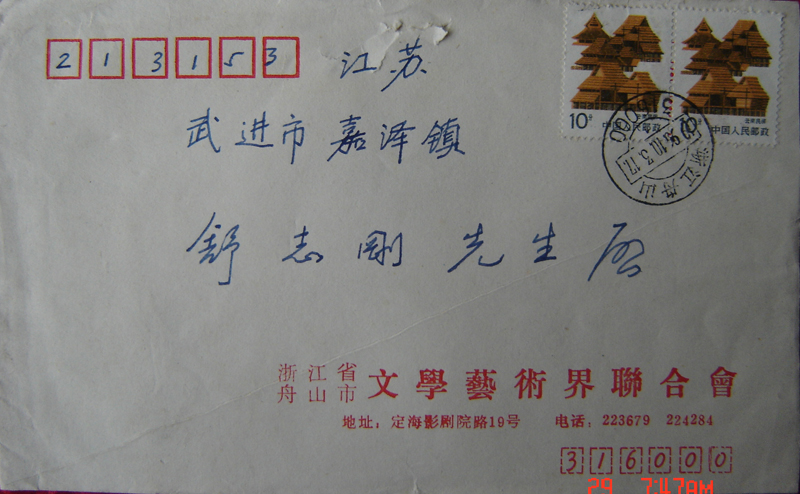 213153
江苏
武进市嘉泽镇
舒志刚先生启
10分 中国人民邮政
中国人民邮政
316000
浙江舟山
浙江省
舟山市
文學藝術界聯合會
地址：定海影剧院路19号 电话：223679 224284
316000
29 7:47AM